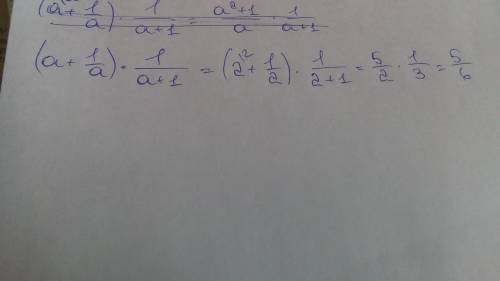 (a + 1/a) · 1/(a+1) = (a²+1)/a · 1/(a+1)
(a + 1/a) · 1/(a+1) = (2\² + 1/2) · 1/(2+1) = 5/2 · 1/3 = 5/6